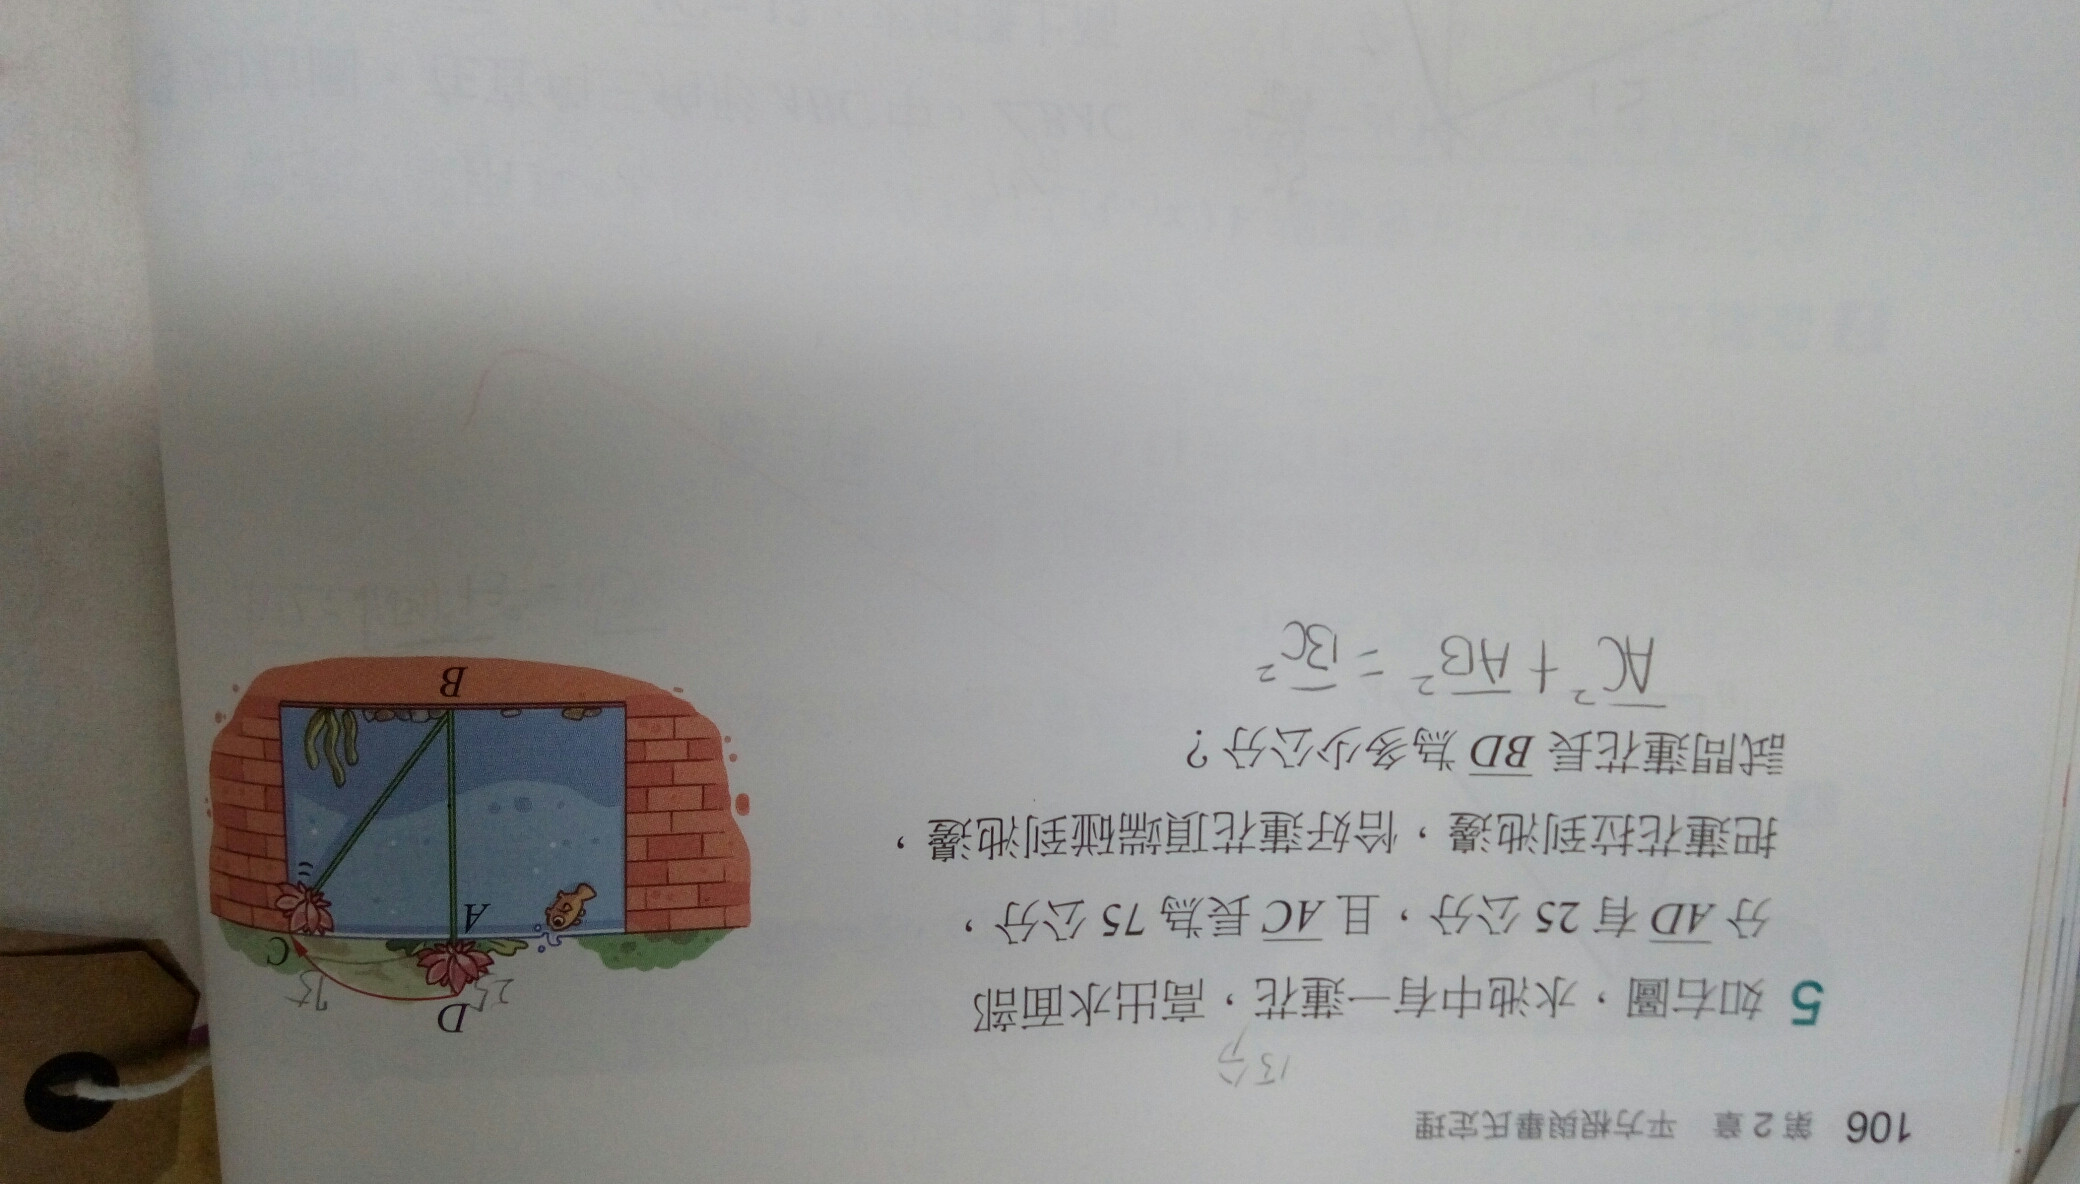 106 第2章 平方根與畢氏定理
13分
5 如右圖，水池中有一蓮花，高出水面部
分 AD 有 25 公分，且 AC 長為 75 公分，
把蓮花拉到池邊，恰好蓮花頂端碰到池邊，
試問蓮花長 BD 為多少公分？
AC² + AB² = BC²
D
25
C
A
B